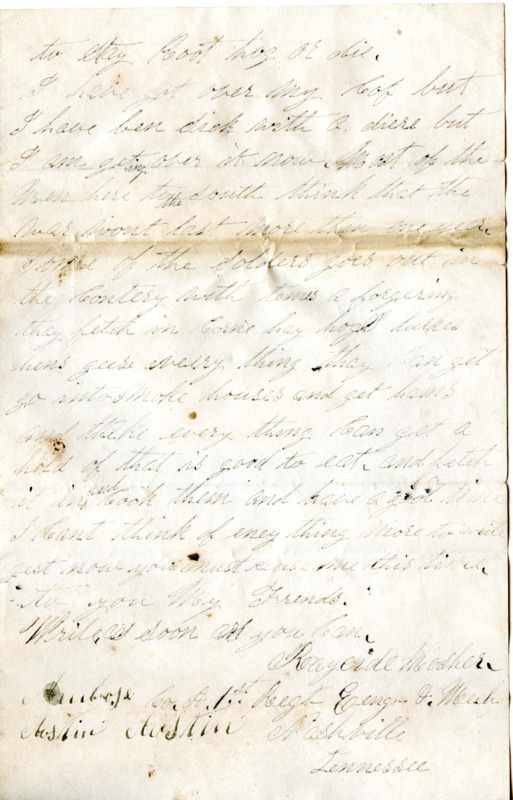 to stay Root hog or die.
I have got over my Cof but
I have ben sick with a diere but
I am geting over it now. Most of the
men here to the South think that the
war wont last more then one year.
Some of the Solders goes out in
the Contery with temes a forgering
thay fetch in Corne hay hogs turkes
hens geese every thing thay Can get
go into smoke houses and get hams
and thake every thing Can get a
hold of that is good to eat. and fetch
it in and Cook them and have a good time
I Cant think of eney thing more to write
jest now you must me this time
to you My Frends.
Write as soon as you Can.
Mosher.
Co. 1st Regt Eng. & Mech
Austin Austin Nashville
Tennessee